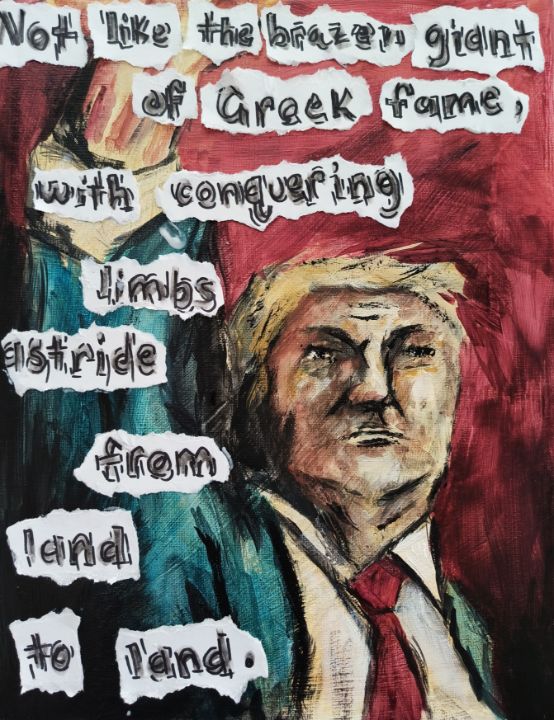 Not like the brazen giant
of Greek fame,
with conquering
limbs
astride
from
land
to land.